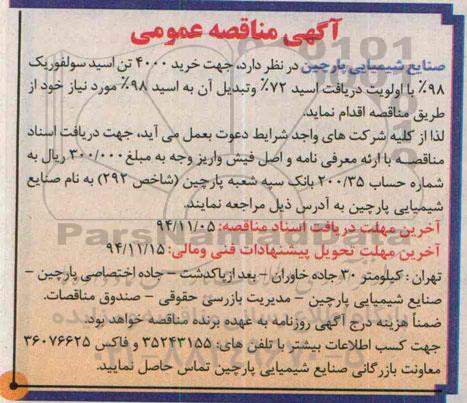 آگهی مناقصه عمومی
صنایع شیمیایی پارچین در نظر دارد، جهت خرید ۴۰۰۰ تن اسید سولفوریک
۹۸٪ با اولویت دریافت اسید ۷۲٪ وتبدیل آن به اسید ۹۸٪ مورد نیاز خود از
طریق مناقصه اقدام نماید.
لذا از کلیه شرکت های واجد شرایط دعوت بعمل می آید، جهت دریافت اسناد
مناقصه با ارئه معرفی نامه و اصل فیش واریز وجه به مبلغ ۳۰۰/۰۰۰ ریال به
شماره حساب ۲۰۰/۳۵ بانک سپه شعبه پارچین (شاخص ۲۹۲) به نام صنایع
شیمیایی پارچین به آدرس ذیل مراجعه نمایند.
آخرین مهلت دریافت اسناد مناقصه: ۹۴/۱۱/۰۵
ParsNamadData
آخرین مهلت تحویل پیشنهادات فنی ومالی: ۹۴/۱۱/۱۵
تهران: کیلومتر ۳۰ جاده خاوران - بعد ازپاکدشت - جاده اختصاصی پارچین -
صنایع شیمیایی پارچین - مدیریت بازرسی حقوقی - صندوق مناقصات.
ضمناً هزینه درج آگهی روزنامه به عهده برنده مناقصه خواهد بود.
جهت کسب اطلاعات بیشتر با تلفن های: ۳۵۲۴۳۱۵۵ و فاکس ۳۶۰۷۶۶۲۵
معاونت بازرگانی صنایع شیمیایی پارچین تماس حاصل نمایید.